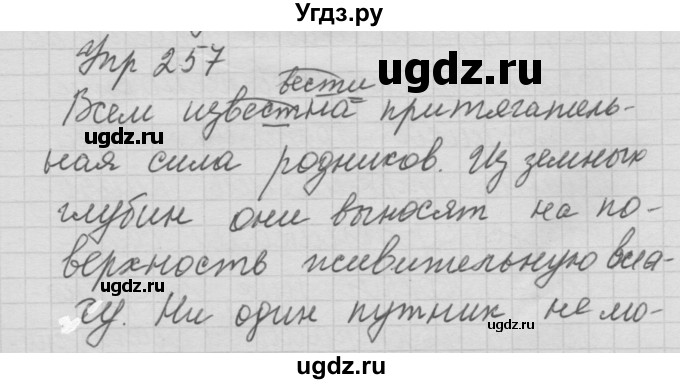 Угдз.ру
Упр 257
вести
ugdz.ru
Всем известна притягатель-
ugdz.ru
ная сила родников. Из земных
глубин они выносят на по-
верхность живительную вла-
ugdz.ru
гу. Ни один путник не мо-
ugdz.ru
ugdz.ru